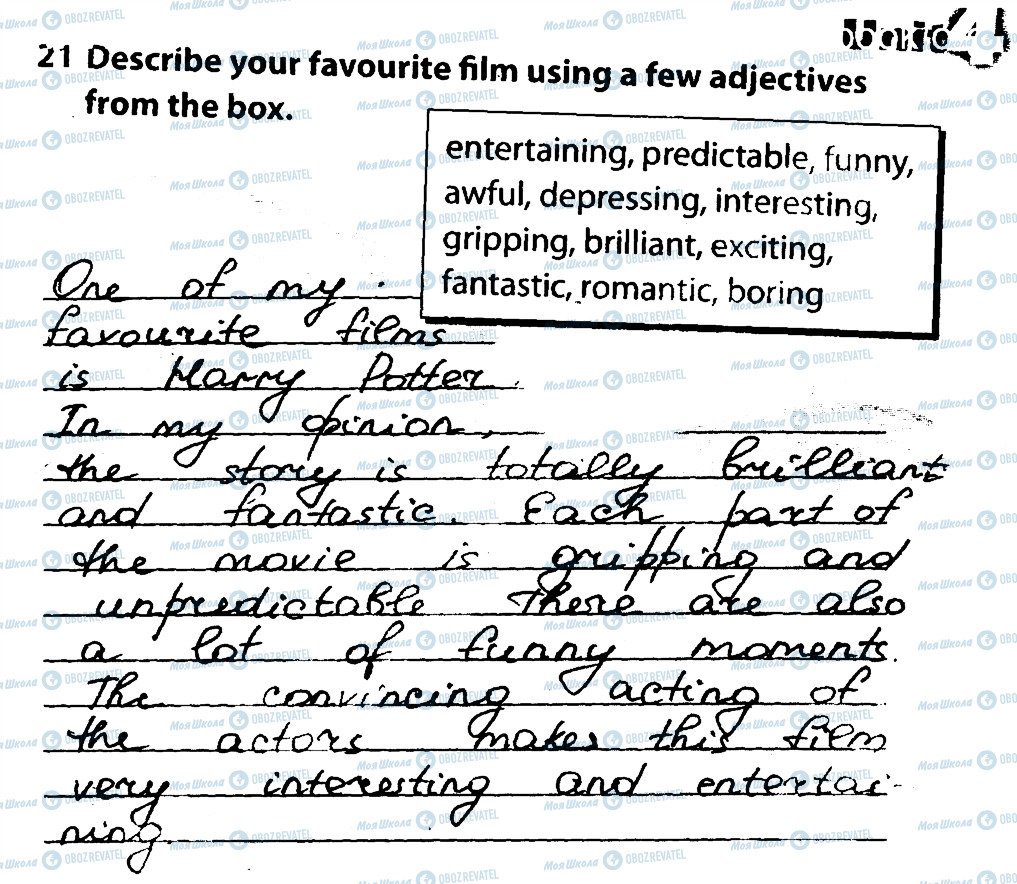 21 Describe your favourite film using a few adjectives
from the box.
entertaining, predictable, funny,
awful, depressing, interesting,
gripping, brilliant, exciting,
fantastic, romantic, boring
One of my
favourite films
is Harry Potter.
In my opinion,
the story is totally brilliant
and fantastic. Each part of
the movie is gripping and
unpredictable There are also
a lot of funny moments.
The convincing acting of
the actors makes this film
very interesting and entertai-
ning.
Моя Школа OBOZREVATEL